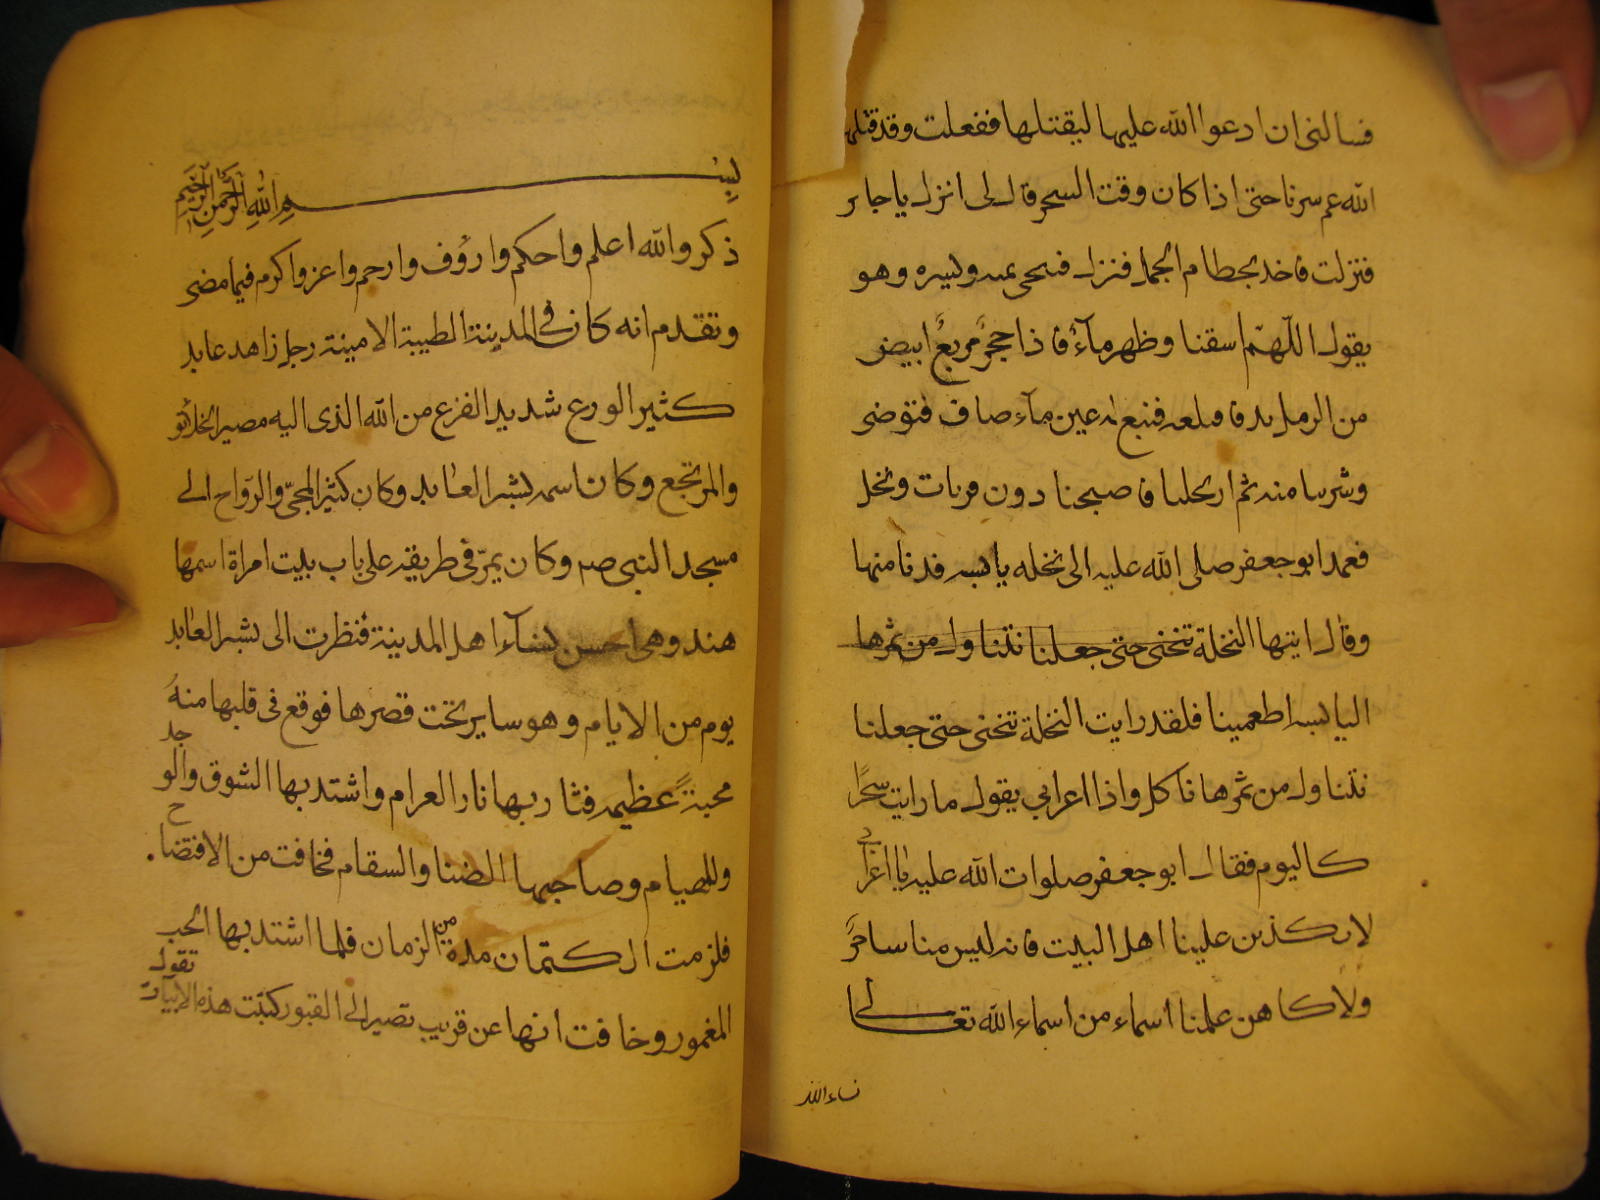 فسالنى ان ادعوا الله عليها ليقتلها ففعلت وقد قتلها
الله عم سرنا حتى اذا كان وقت السحر قال لى انزل يا جابر
فنزلت فاخذ بخطام الجمل فنزل فنحى يمنه ويسره وهو
يقول اللّهمّ اسقنا وظهر مآءٌ فاذا حجرٌ مربعٌ ابيض
من الرمل فاقلعه فنبع له عين مآء صاف فتوضى
وشربنا منه ثم ارتحلنا فاصبحنا دون قريات ونخل
فعمد ابو جعفر صلى الله عليه الى نخله يابسه فدنا منها
وقال ايتها النخلة تنحنى حتى جعلنا نتناول من ثمرها
اليابسه اطعمينا فلقد رايت النخلة تنحنى حتى جعلنا
نتناول من ثمرها ناكل واذا اعرابي يقول ما رايت سحرًا
كاليوم فقال ابو جعفر صلوات الله عليه يا اعرابي
لا تكذبن علينا اهل البيت فانه ليس منا ساحرٌ
ولا كاهن علمنا اسماء من اسماء الله تعالى
بسم الله الرحمن الرحيم
ذكر والله اعلم واحكم وارؤف وارحم واعز واكرم فيما مضى
وتقدم انه كان فى المدينة الطيبة الامينة رجل زاهد عابد
كثير الورع شديد الفزع من الله الذى اليه مصير الخلائق
والمرتجع وكان اسمه بشر العابد وكان كثير المجىّ والرّواح الى
مسجد النبى صم وكان يمرّ فى طريقه على باب بيت امراة اسمها
هند وهى احسن نسآء اهل المدينة فنظرت الى بشر العابد
يوم من الايام وهو ساير تحت قصرها فوقع فى قلبها منهُ
محبةً عظيمه فثار بها نار الغرام واشتد بها الشوق والوجد
وللصيام وصاحبها الضنا والسقام فخافت من الافتضاح
فلزمت الكتمان مدة من الزمان فلما اشتد بها الحب
المغمور وخافت انها عن قريب تصير الى القبور كتبت هذه الابيات تقول